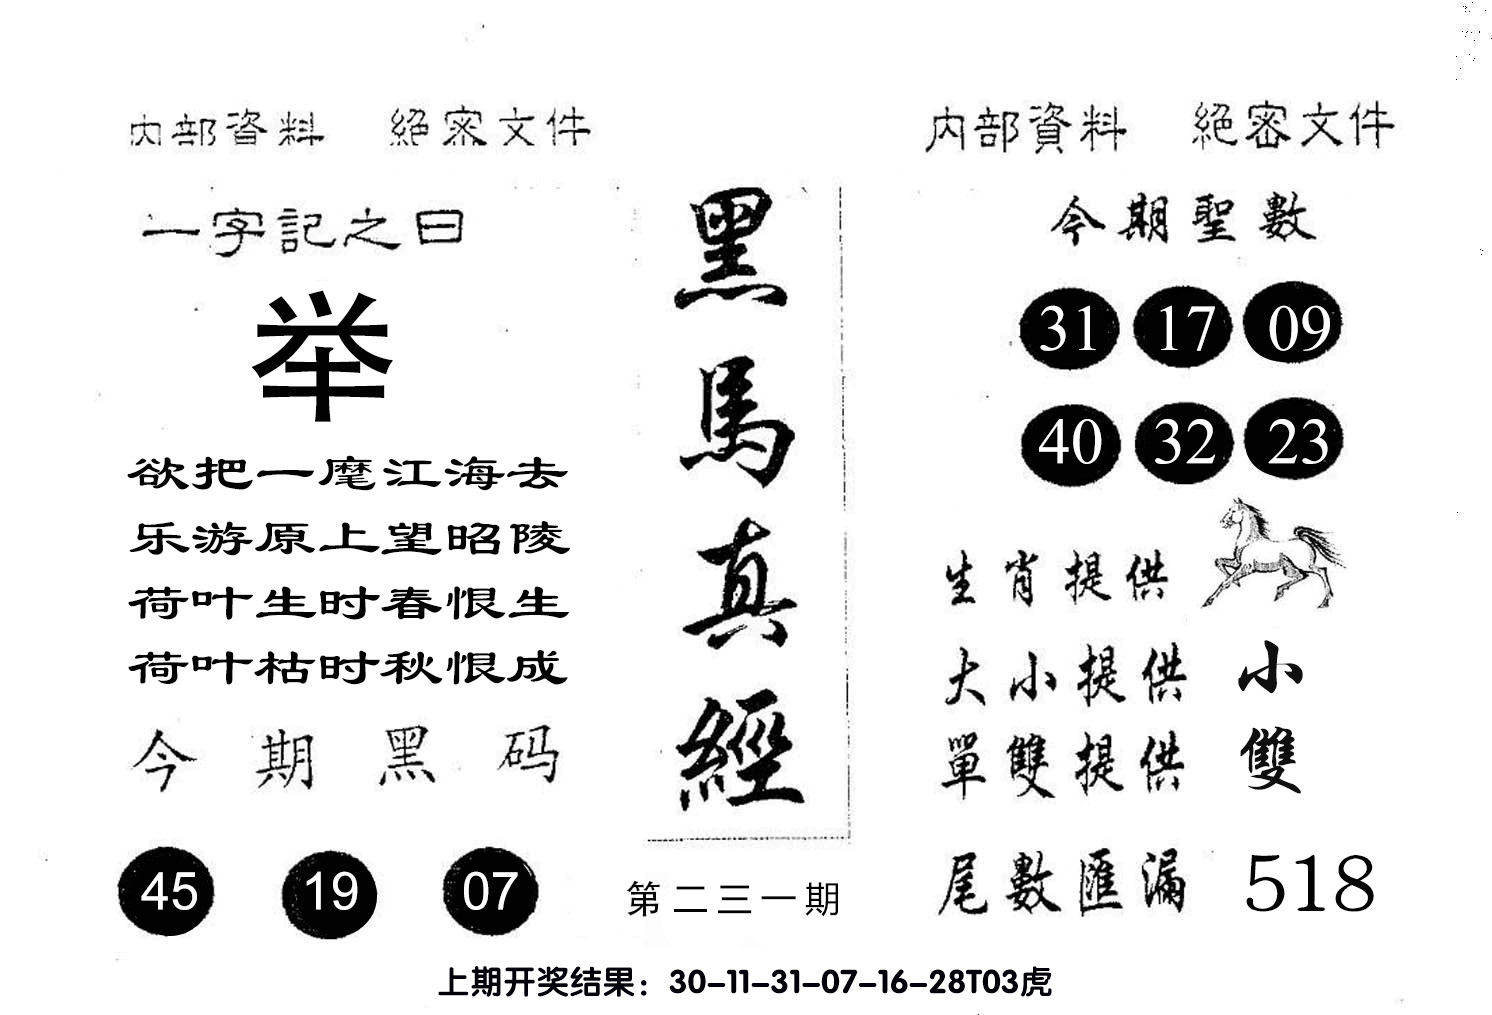 内部資料 絕密文件
一字記之曰
举
欲把一麾江海去
乐游原上望昭陵
荷叶生时春恨生
荷叶枯时秋恨成
今期黑码
45 19 07
黑馬真經
第二三一期
内部資料 絕密文件
今期聖數
31 17 09
40 32 23
生肖提供
大小提供 小
單雙提供 雙
尾數匯漏 518
上期开奖结果：30-11-31-07-16-28T03虎